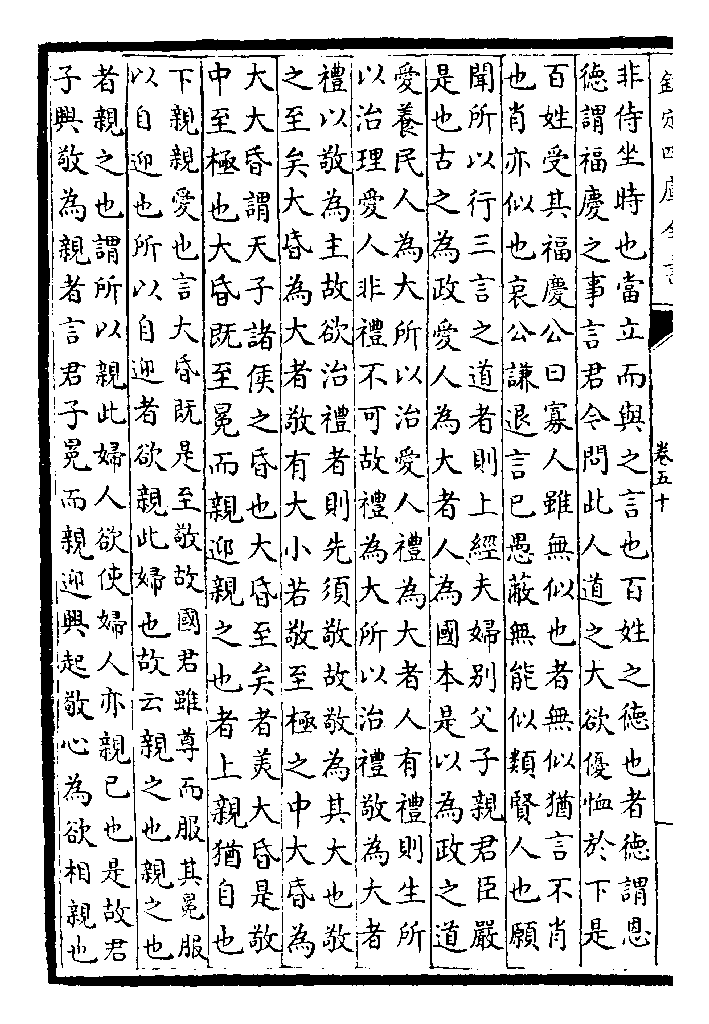 欽定四庫全書
卷五十
非侍坐時也當立而與之言也百姓之德也者德謂恩
德謂福慶之事言君今問此人道之大欲優恤於下是
百姓受其福慶公曰寡人雖無似也者無似猶言不肖
也肖亦似也哀公謙退言已愚蔽無能似類賢人也願
聞所以行三言之道者則上經夫婦別父子親君臣嚴
是也古之為政愛人為大者人為國本是以為政之道
愛養民人為大所以治愛人禮為大者人有禮則生所
以治理愛人非禮不可故禮為大所以治禮敬為大者
禮以敬為主故欲治禮者則先須敬故敬為其大也敬
之至矣大昏為大者敬有大小若敬至極之中大昏為
大大昏謂天子諸侯之昏也大昏至矣者美大昏是敬
中至極也大昏既至冕而親迎親之也者上親猶自也
下親親愛也言大昏既是至敬故國君雖尊而服其冕服
以自迎也所以自迎者欲親此婦也故云親之也親之也
者親之也謂所以親此婦人欲使婦人亦親已也是故君
子興敬為親者言君子冕而親迎興起敬心為欲相親也